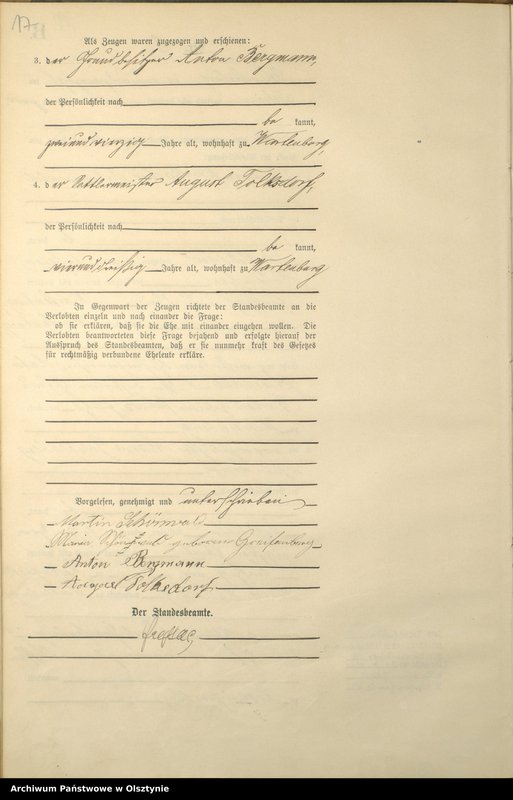 17
Als Zeugen waren zugezogen und erschienen:
3. der Grundbesitzer Anton Bergmann,
der Persönlichkeit nach
be kannt,
zweiundvierzig Jahre alt, wohnhaft zu Wartenburg,
4. der Sattlermeister August Tolksdorf,
der Persönlichkeit nach
be kannt,
vierunddreißig Jahre alt, wohnhaft zu Wartenburg
In Gegenwart der Zeugen richtete der Standesbeamte an die
Verlobten einzeln und nach einander die Frage:
ob sie erklären, daß sie die Ehe mit einander eingehen wollen. Die
Verlobten beantworteten diese Frage bejahend und erfolgte hierauf der
Ausspruch des Standesbeamten, daß er sie nunmehr kraft des Gesetzes
für rechtmäßig verbundene Eheleute erkläre.
Vorgelesen, genehmigt und unterschrieben
Martin Schönwald
Maria Schönwald geborene Greifenberg
Anton Bergmann
August Tolksdorf
Der Standesbeamte.
Archiwum Państwowe w Olsztynie